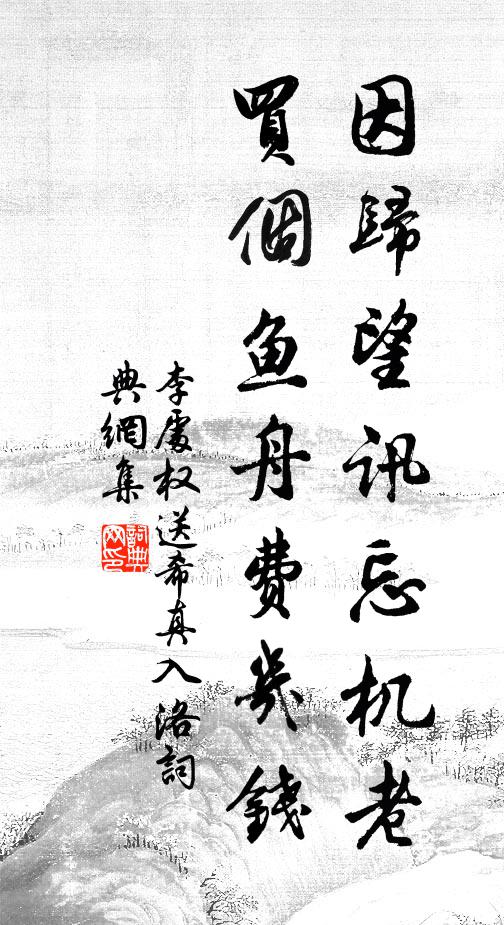 因歸望訊忘机老
買個鱼舟費幾錢
李處权送希真入洛詞
典網集
詞典
网印